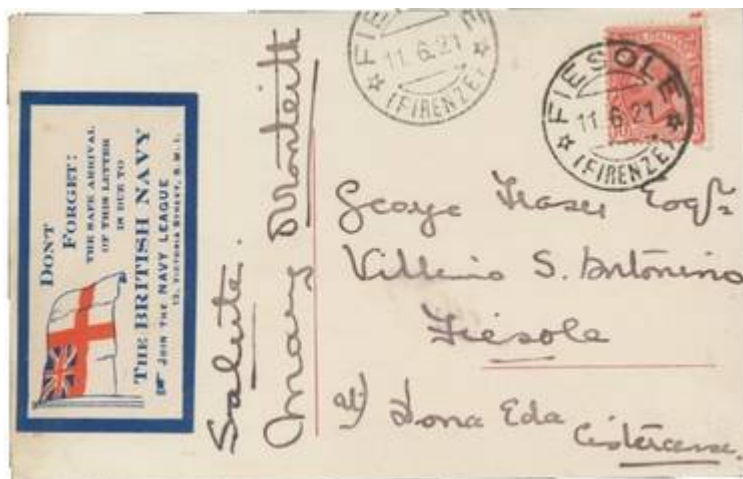 DON'T
FORGET:
THE SAFE ARRIVAL
OF THIS LETTER
IS DUE TO
THE BRITISH NAVY
☛ JOIN THE NAVY LEAGUE
13, VICTORIA STREET, S.W.1.
Salute.
Mary Monteith
FIESOLE
11.6.21
(FIRENZE)
FIESOLE
11.6.21
(FIRENZE)
George Fraser Esqre
Villino S. Antonino
Fiesole
Dona Eda